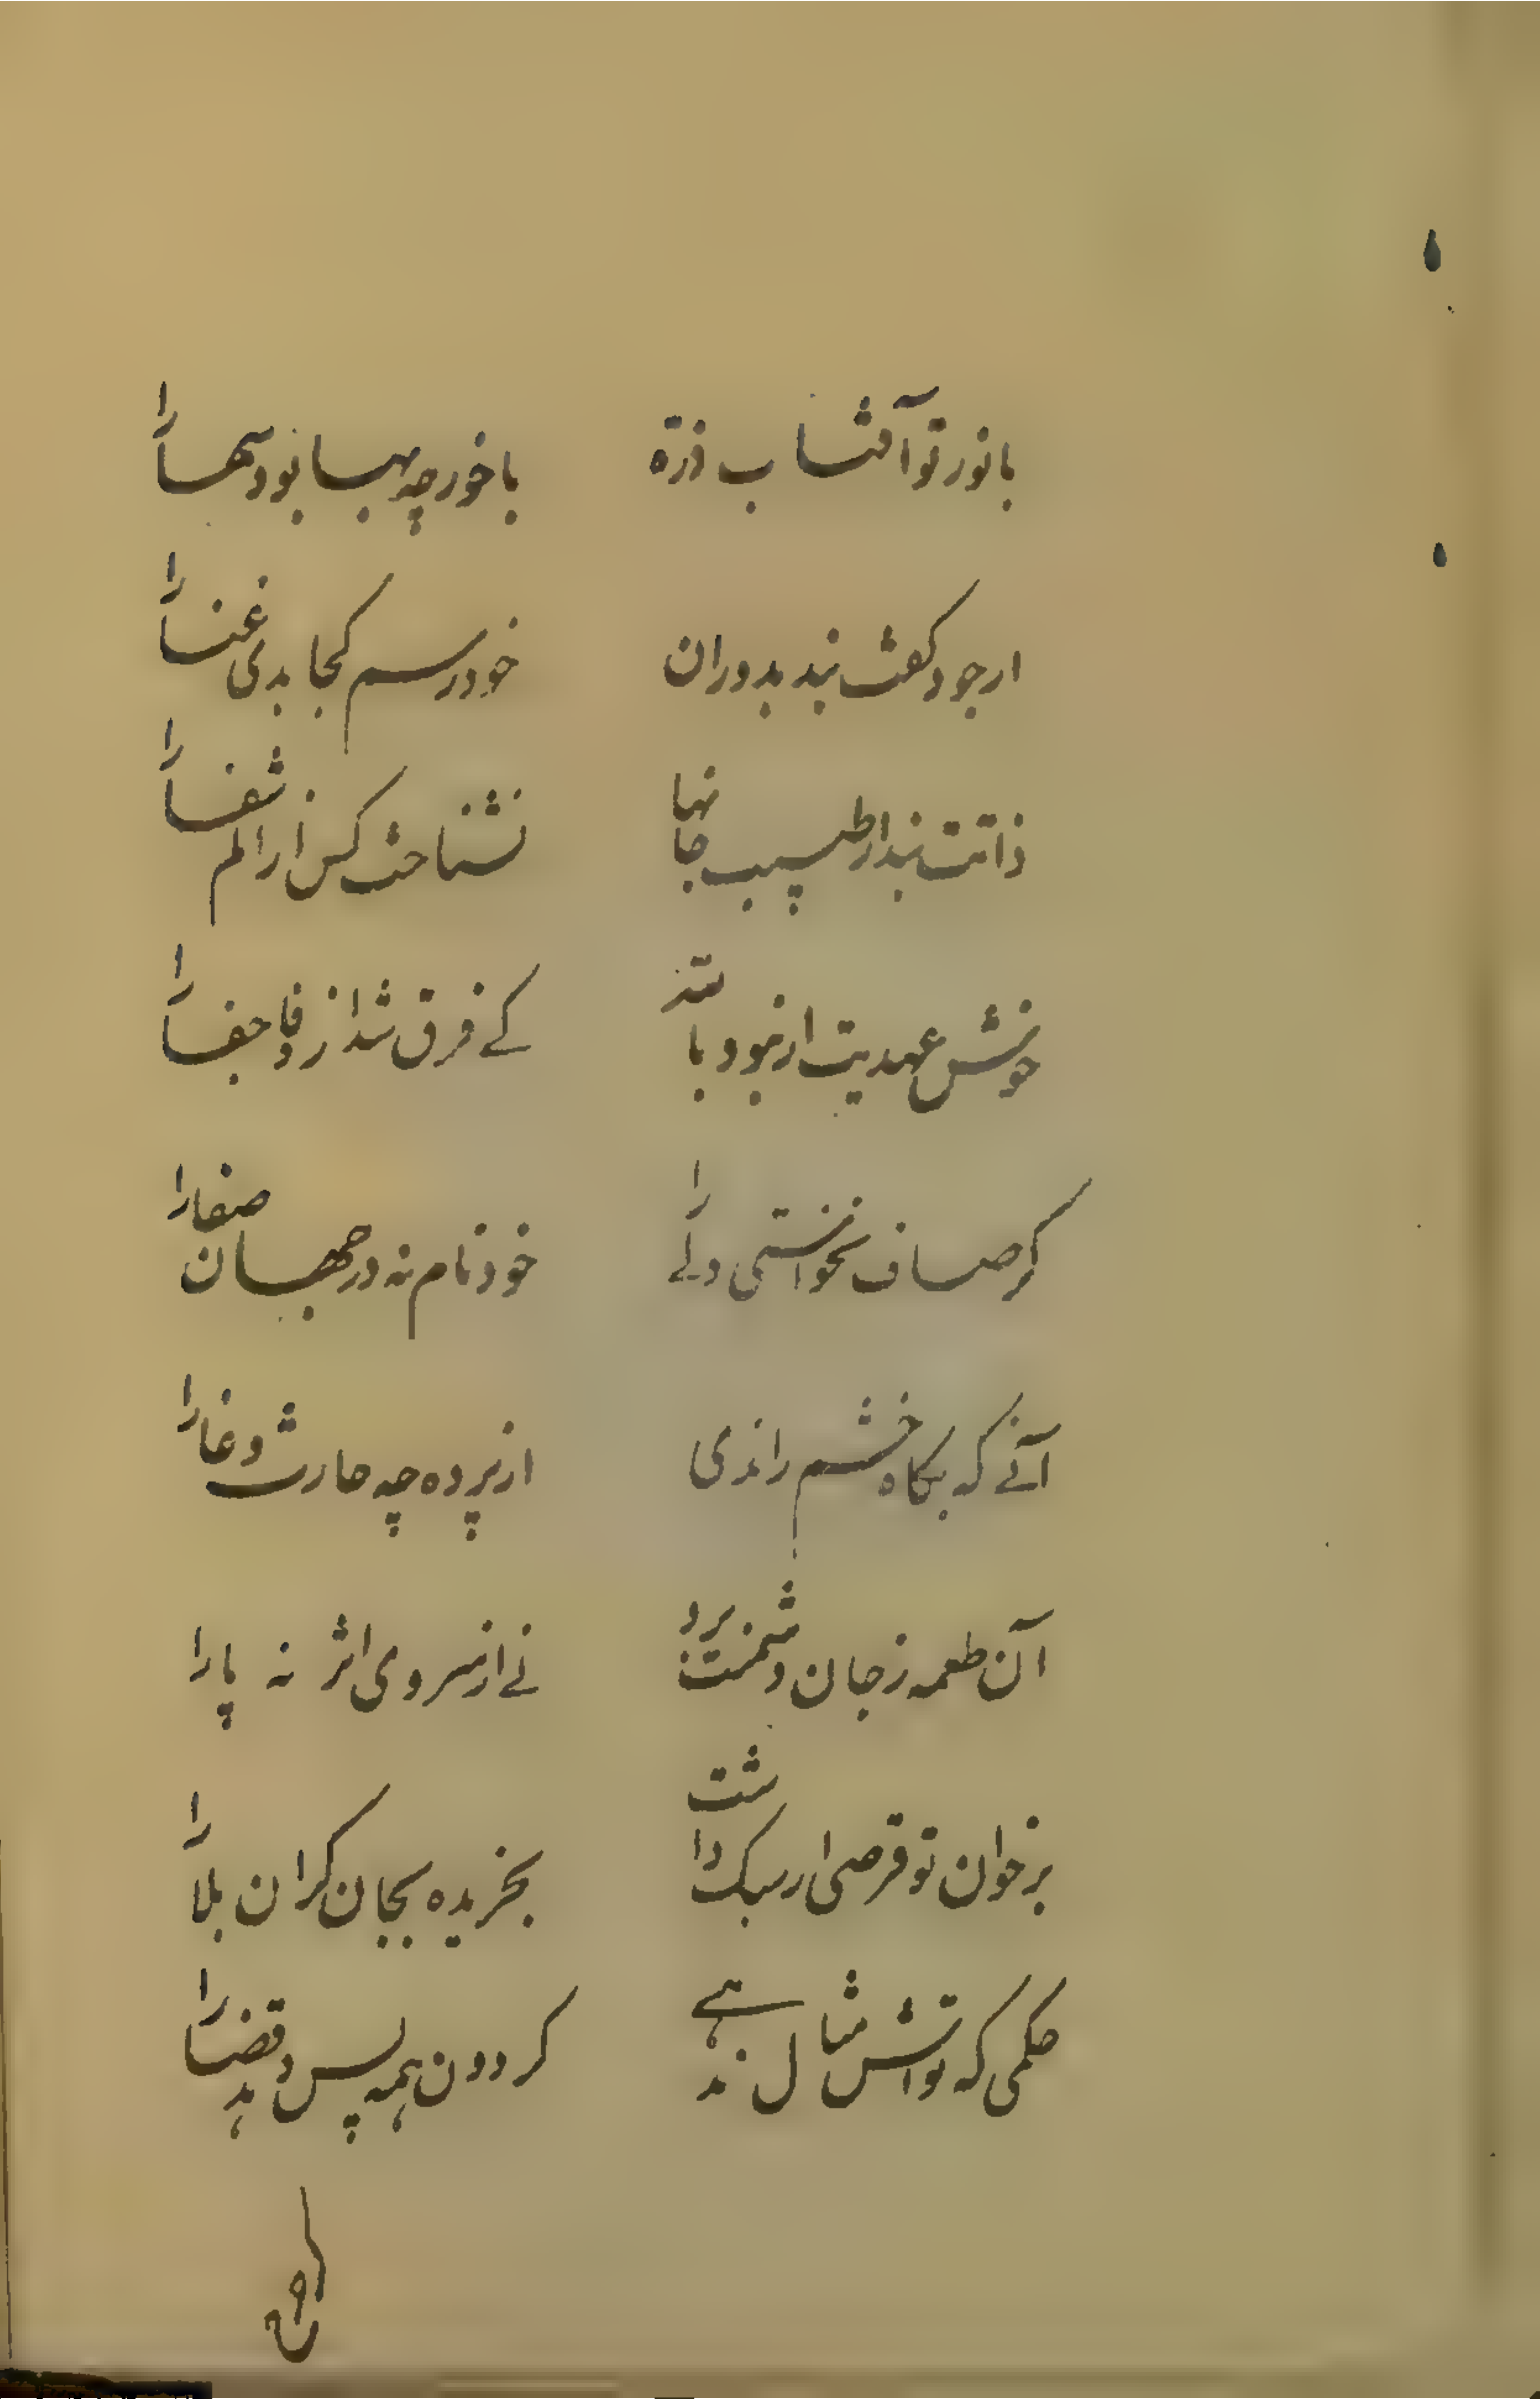 با نور تو آفتاب ذرّه با خور چه بها بود سها را
ار جود کفت نبد بدوران خود رسم کجا بدی غنا را
ذاتت نبد ار طبیب جانها نشناخت کس از الم شفا را
خوش عهدیت ار نبود باشد کے فرق شد از وفا جفا را
کر صاف نخواستی دلے را خود نام نه در جهان صفا را
آنے که بکاه خشم راندی از پرده چه حارث وغا را
آن طعمه ز جان دشمنت برد نے از سر وی اثر نه پا را
بر خوان تو قرصی ار سبک داشت بخریده بجان کران بلا را
حکمی که تواش مثال ندهے کردون همه پس دهد قضا را